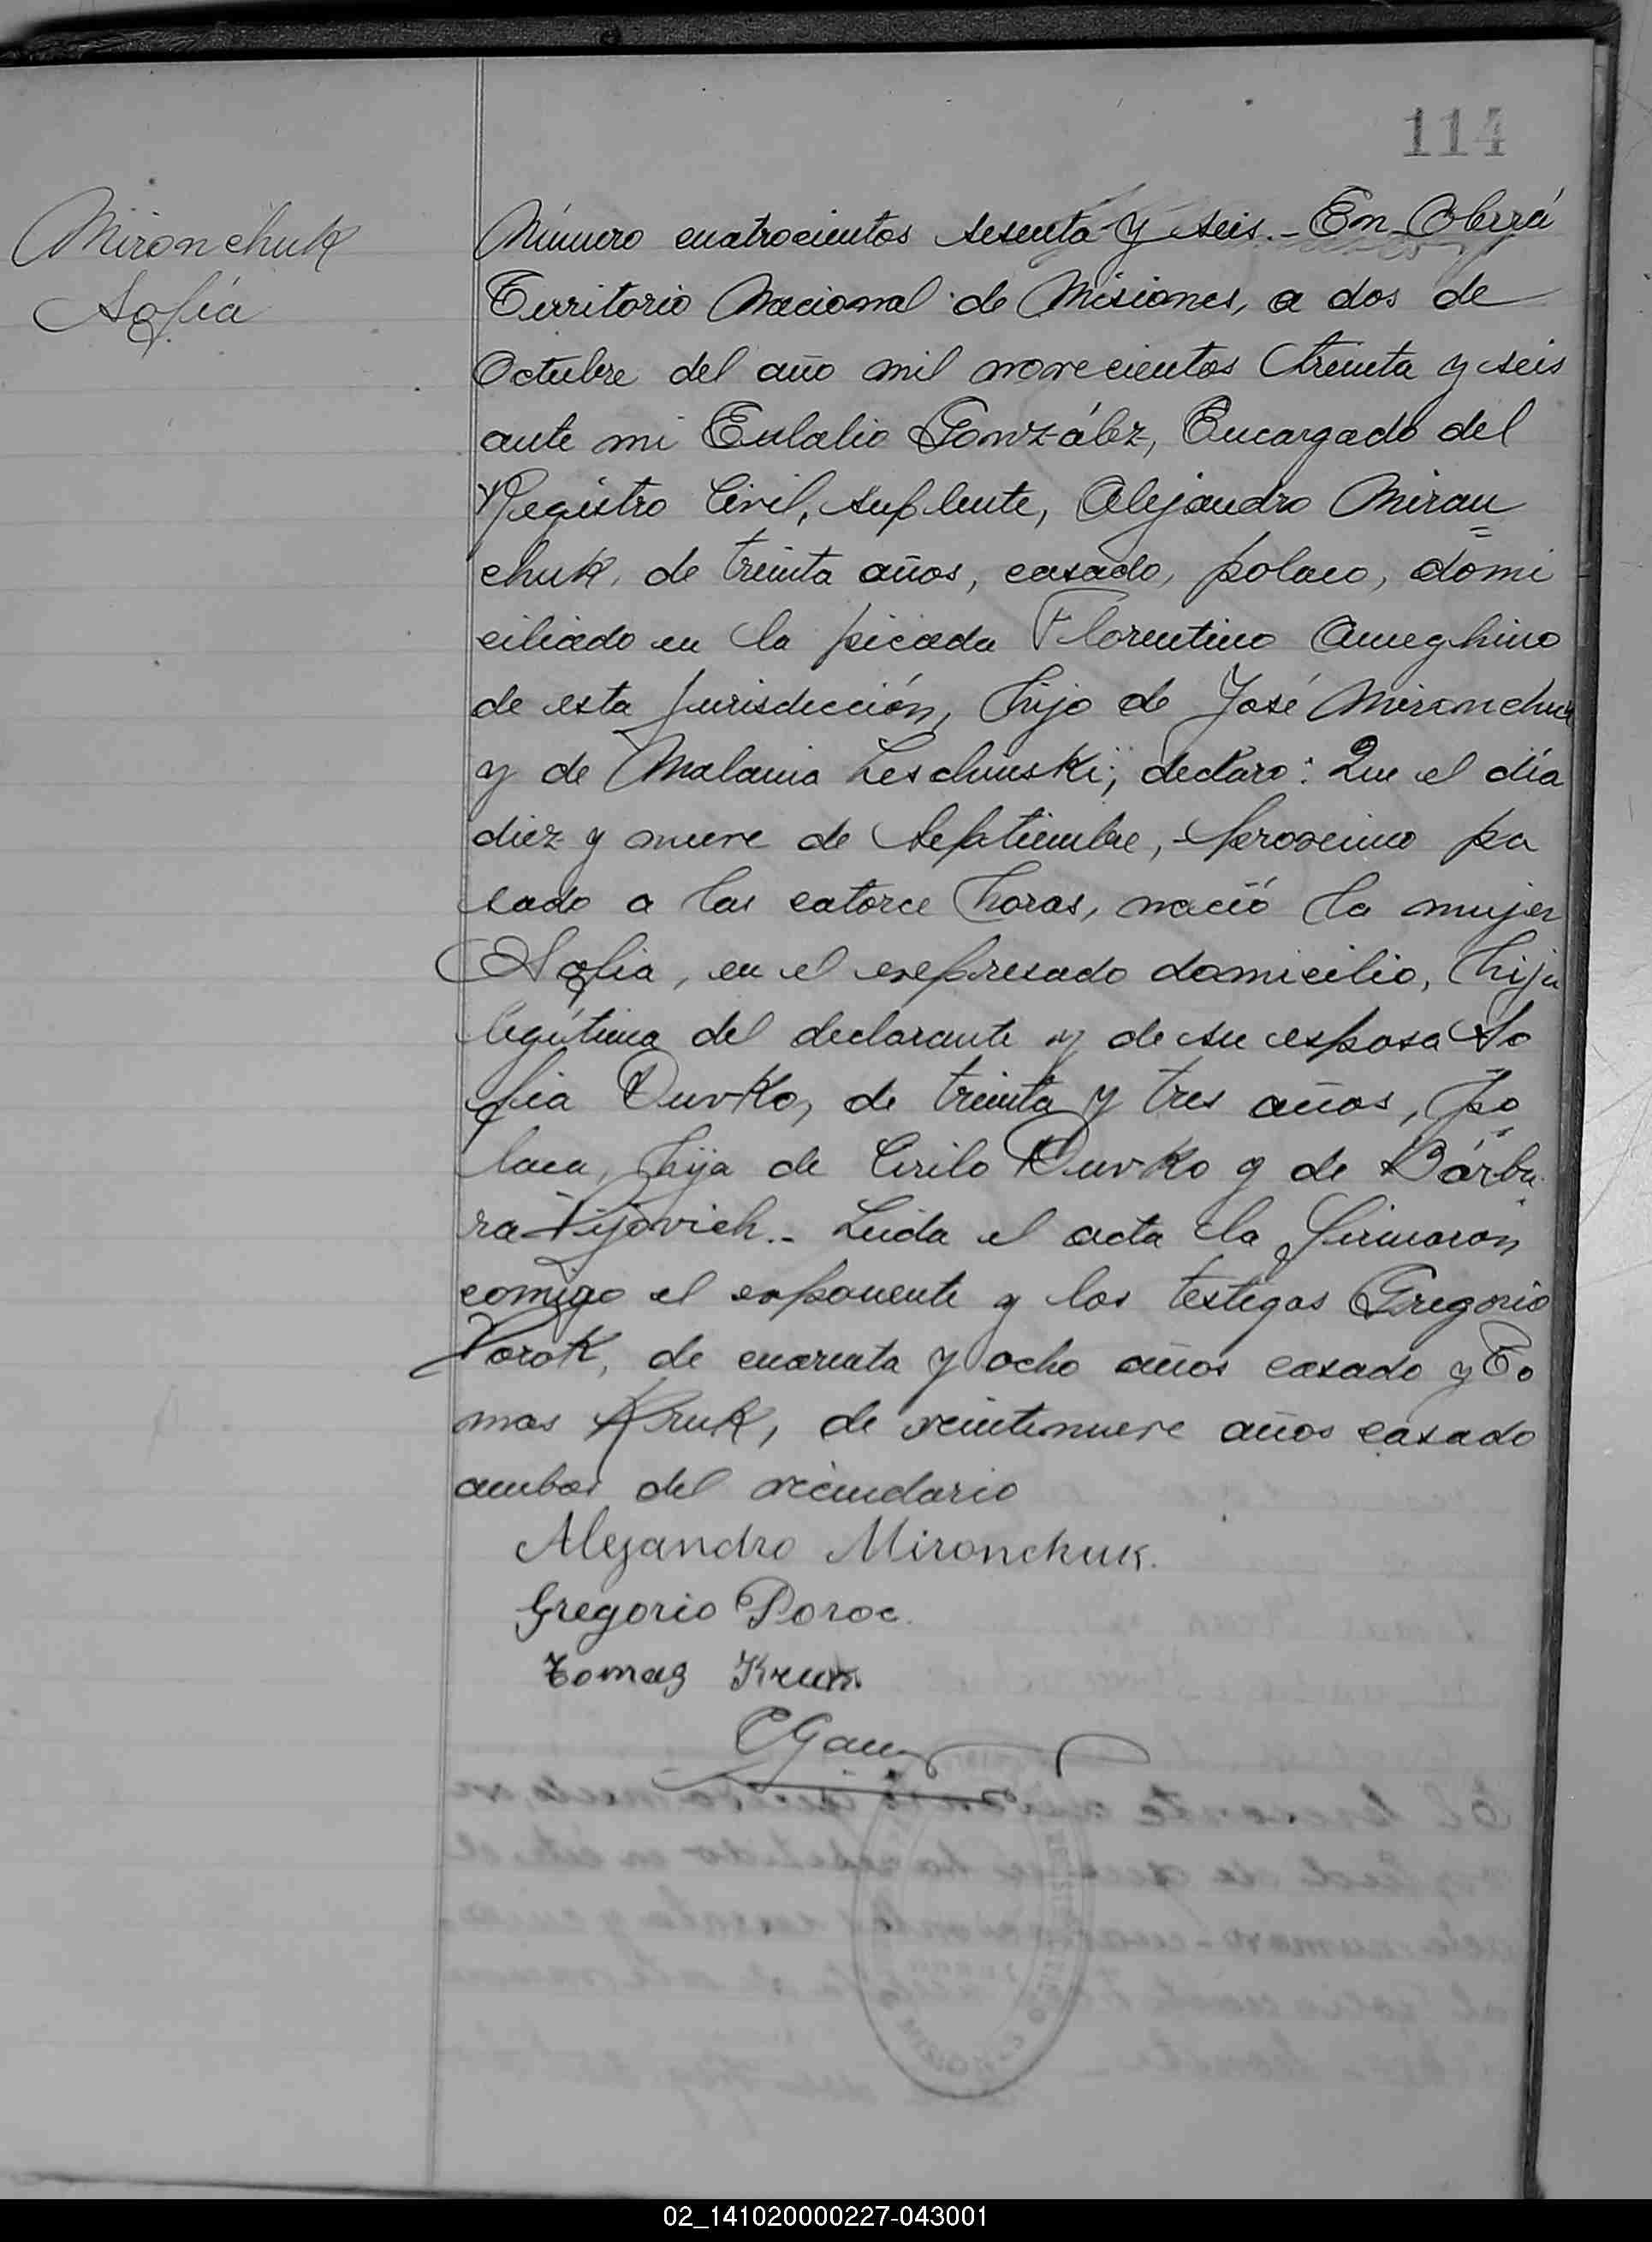 114
Mironchuk
Sofía
Número cuatrocientos sesenta y seis.- En Oberá
Territorio Nacional de Misiones, a dos de
Octubre del año mil novecientos treinta y seis
ante mi Eulalio González, Encargado del
Registro Civil, suplente, Alejandro Miran=
chuk, de treinta años, casado, polaco, domi
ciliado en la picada Florentino Ameghino
de esta jurisdicción, hijo de José Mironchuk
y de Malania Leschinski; declaro: Que el día
diez y nueve de Septiembre, proximo pa
sado a las catorce horas, nació la mujer
Sofia, en el expresado domicilio, hija
legítima del declarante y de su esposa So
fia Durko, de treinta y tres años, po=
laca, hija de Cirilo Durko y de Bárba
ra Vijovich.- Leida el acta la firmaron
comigo el exponente y los testigos Gregorio
Porok, de cuarenta y ocho años casado y To
mas Kruk, de veintenueve años casado
ambos del vecindario
Alejandro Mironchuk.
Gregorio Poroc.
Tomas Kruk.
EGonz
02_141020000227-043001